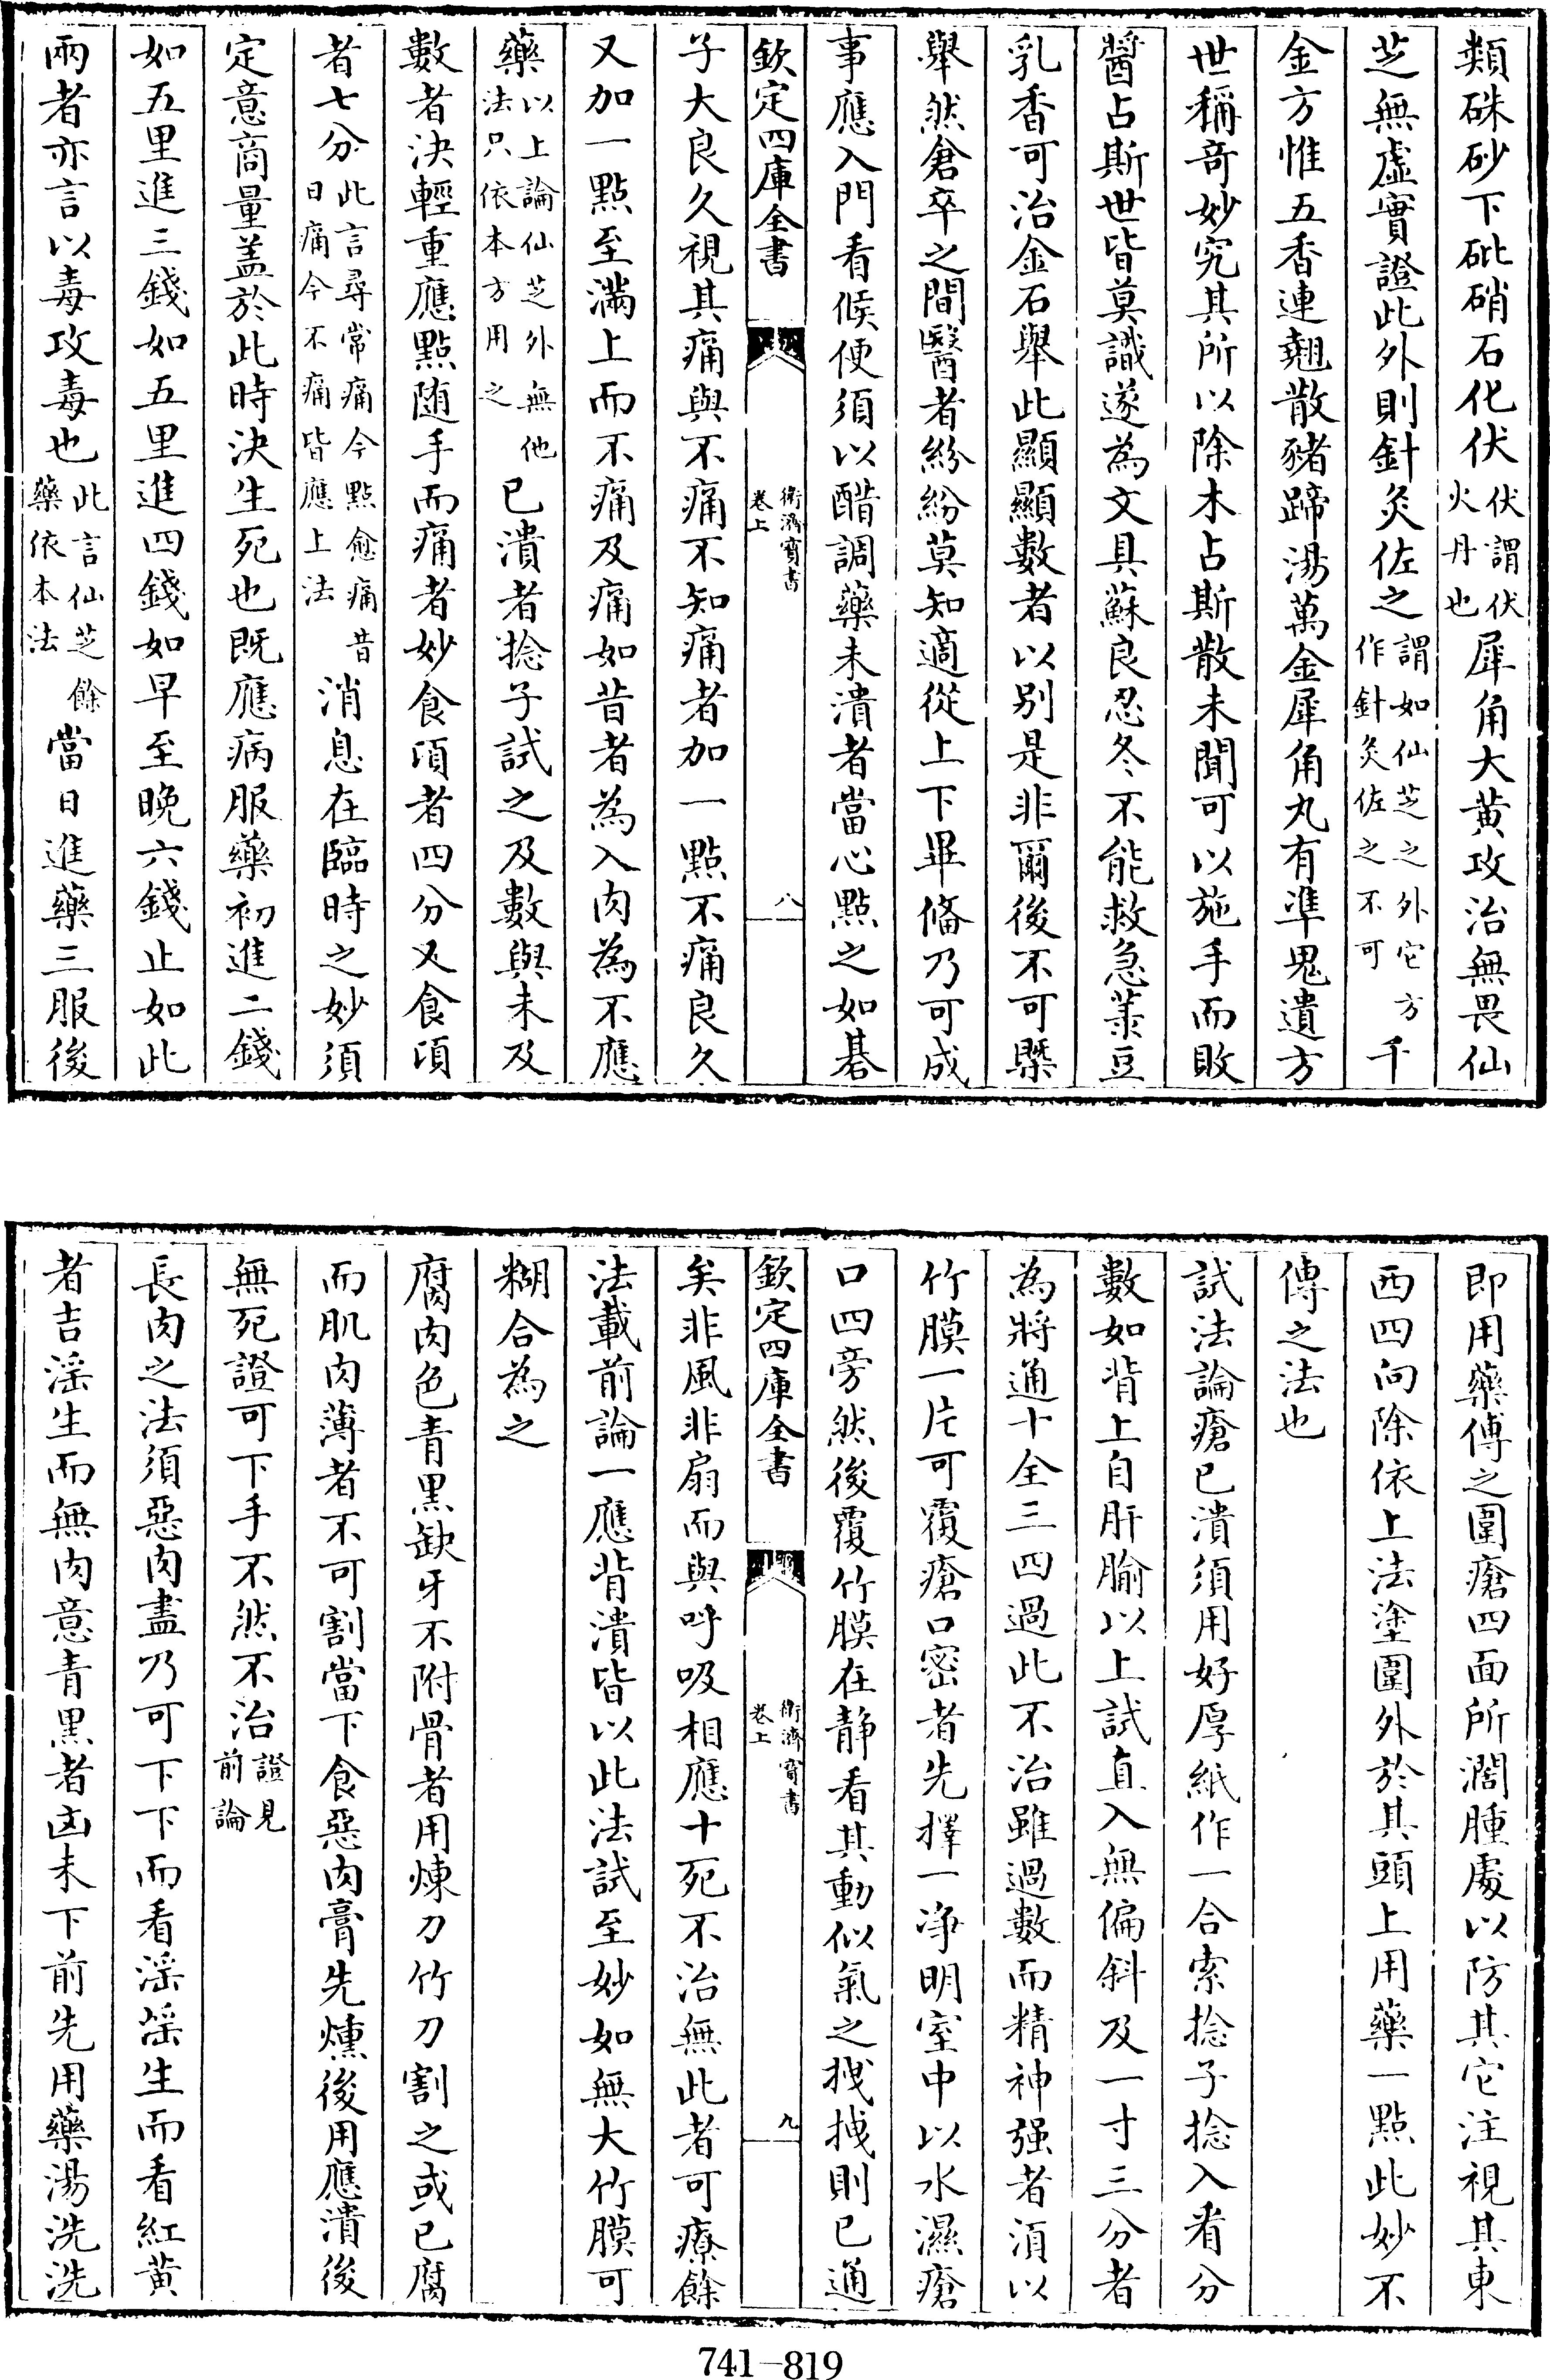 類硃砂下砒硝石化伏伏謂伏火丹也犀角大黄攻治無畏仙
芝無虚實證此外則針灸佐之謂如仙芝之外它方作針灸佐之不可千
金方惟五香連翹散豬蹄湯萬金犀角丸有準鬼遺方
世稱竒妙究其所以除木占斯散未聞可以施手而敗
醬占斯世皆莫識遂為文具蘇良忍冬不能救急菉豆
乳香可治金石舉此顯顯數者以别是非爾後不可槩
舉然倉卒之間醫者紛紛莫知適從上下畢備乃可成
事應入門看候便須以醋調藥未潰者當心點之如碁
欽定四庫全書
衛濟寳書
卷上
八
子大良久視其痛與不痛不知痛者加一點不痛良久
又加一點至滿上而不痛及痛如昔者為入肉為不應
藥以上論仙芝外無他法只依本方用之已潰者捻子試之及數與未及
數者決輕重應點随手而痛者妙食頃者四分又食頃
者七分此言尋常痛今點愈痛昔日痛今不痛皆應上法消息在臨時之妙須
定意商量盖於此時決生死也既應病服藥初進二錢
如五里進三錢如五里進四錢如早至晚六錢止如此
兩者亦言以毒攻毒也此言仙芝餘藥依本法當日進藥三服後
即用藥傅之圍瘡四面所濶腫處以防其它注視其東
西四向除依上法塗圍外於其頭上用藥一點此妙不
傳之法也
試法論瘡已潰須用好厚紙作一合索捻子捻入看分
數如背上自肝腧以上試直入無偏斜及一寸三分者
為將通十全三四過此不治雖過數而精神强者須以
竹膜一片可覆瘡口密者先擇一浄明室中以水濕瘡
口四旁然後覆竹膜在静看其動似氣之拽拽則已通
欽定四庫全書
衛濟寳書
卷上
九
矣非風非扇而與呼吸相應十死不治無此者可療餘
法載前論一應背潰皆以此法試至妙如無大竹膜可
糊合為之
腐肉色青黑缺牙不附骨者用煉刀竹刀割之或已腐
而肌肉薄者不可割當下食惡肉膏先燻後用應潰後
無死證可下手不然不治證見前論
長肉之法須惡肉盡乃可下下而看滛滛生而看紅黄
者吉滛生而無肉意青黒者凶未下前先用藥湯洗洗
741—819